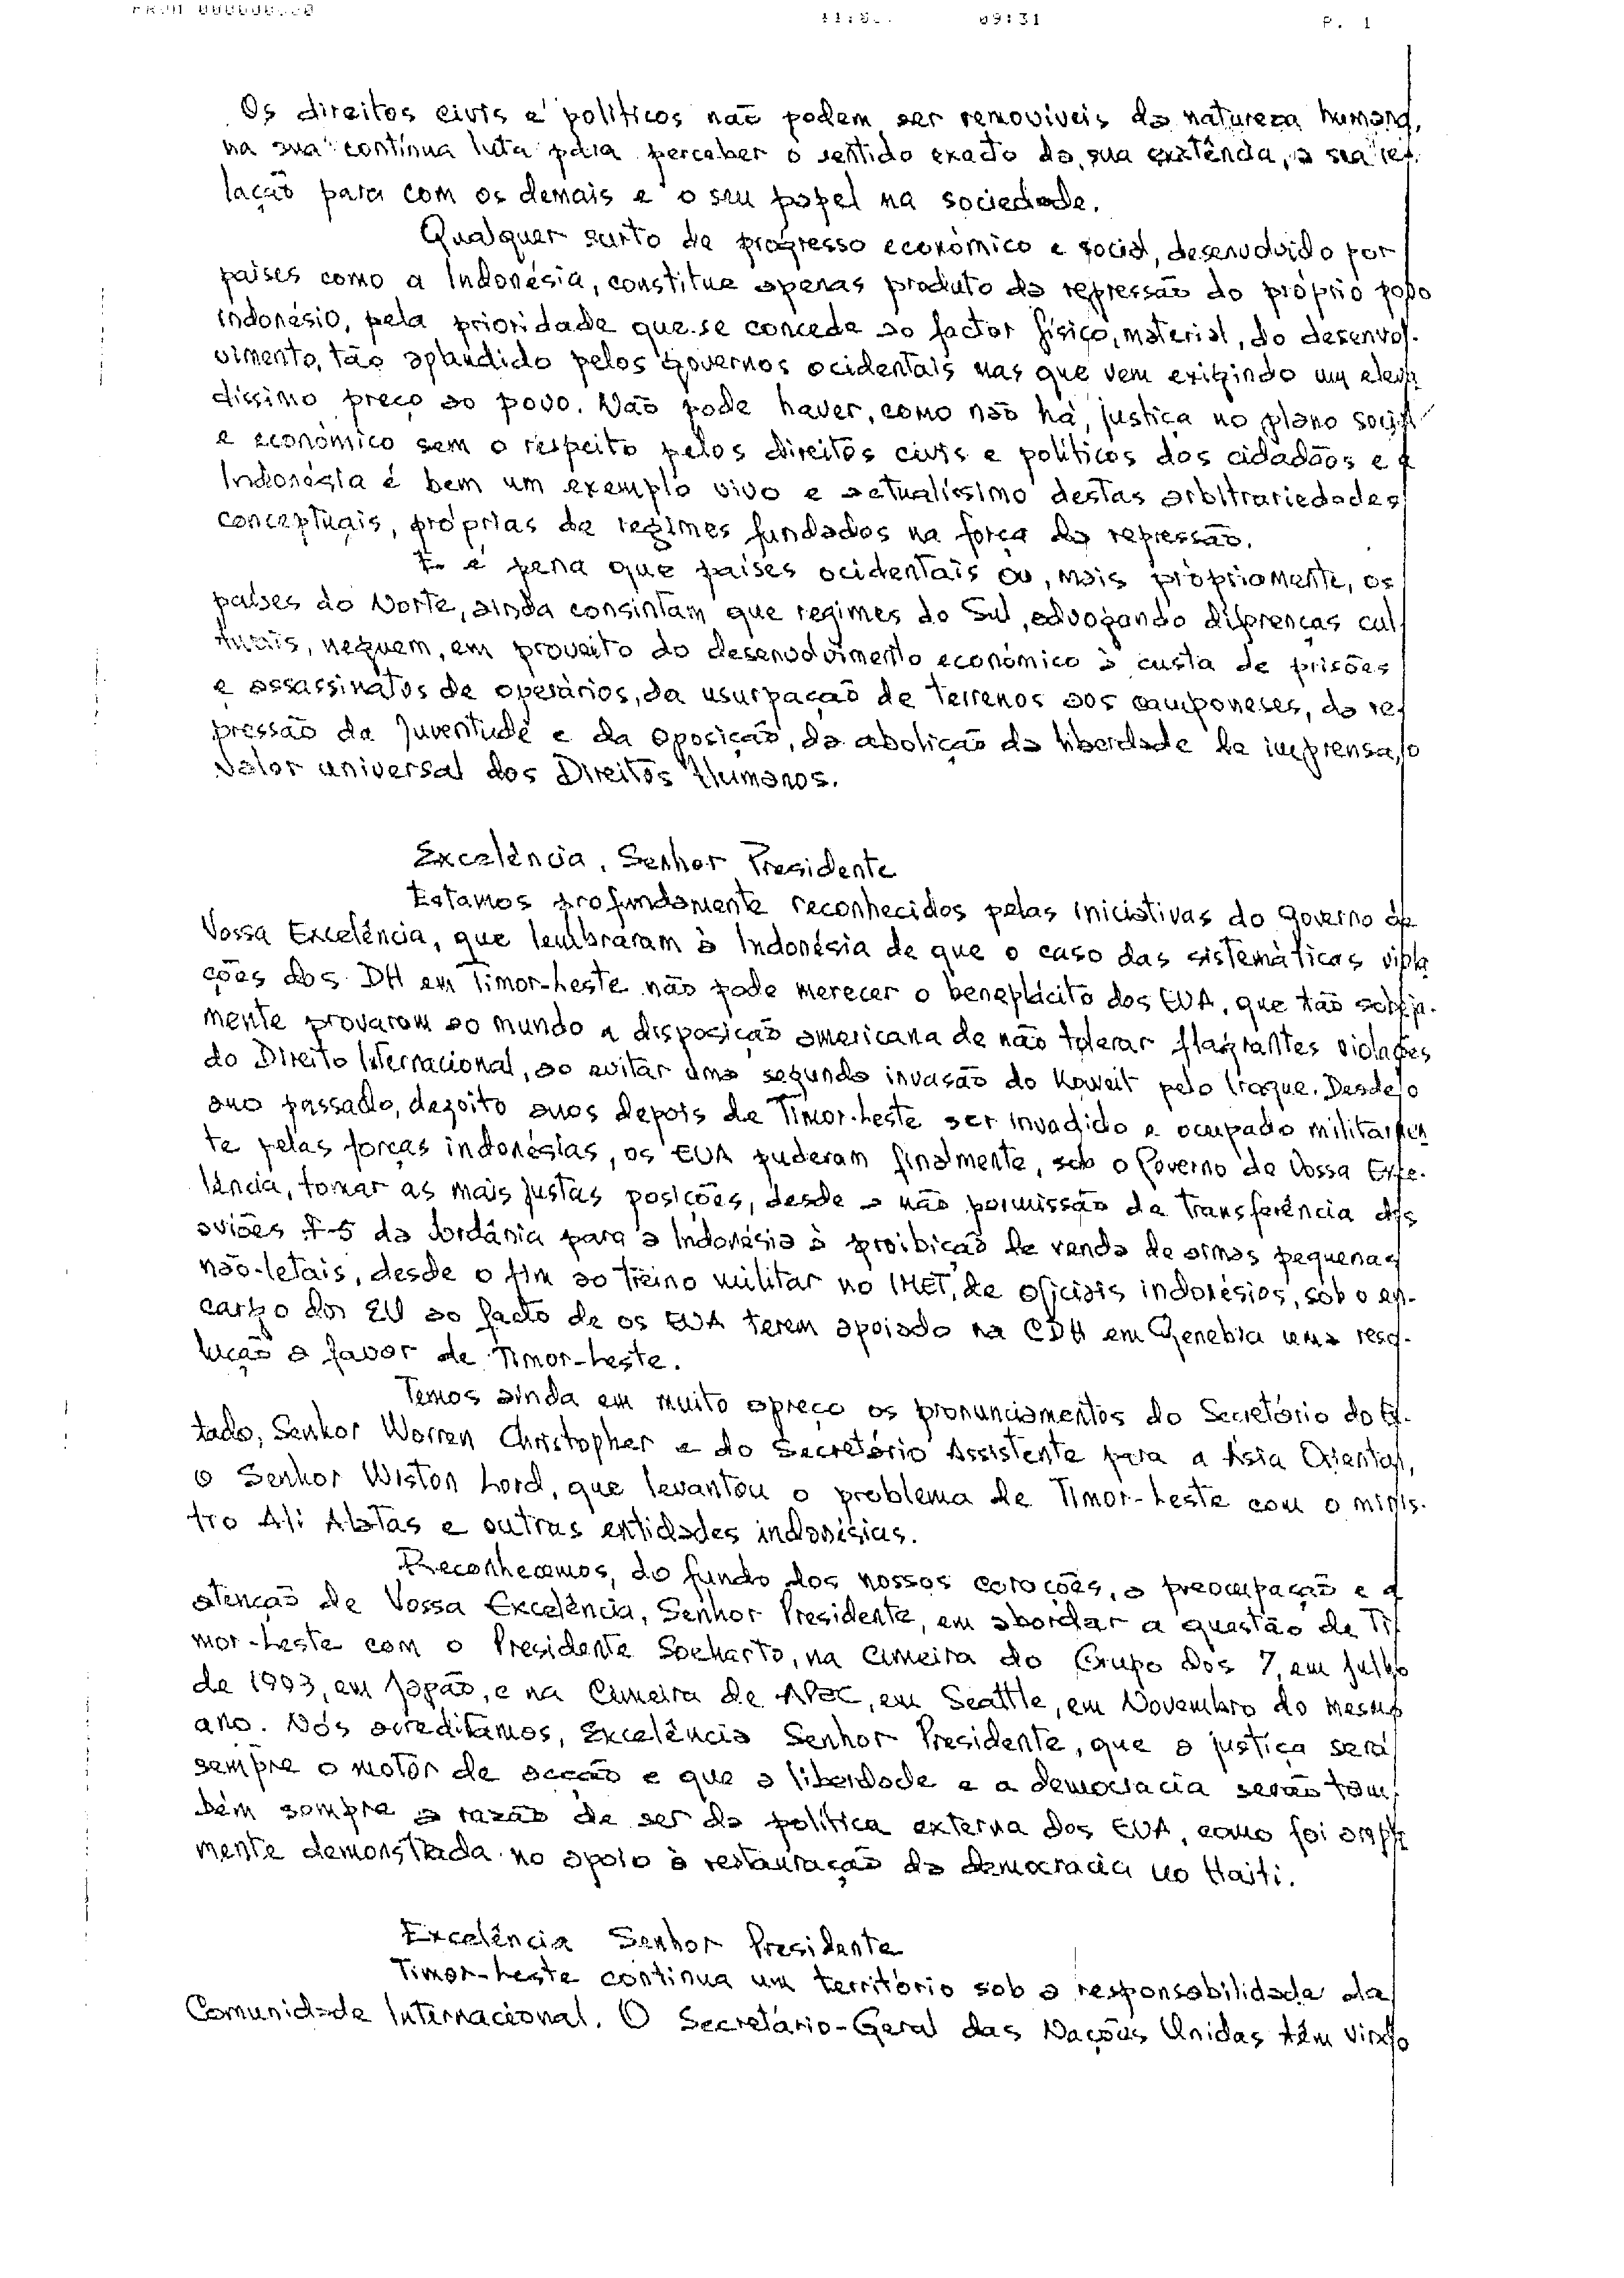 09:31 P. 1
Os direitos civis e políticos não podem ser removíveis da natureza humana,
na sua contínua luta para perceber o sentido exacto da sua existência, a sua re-
lação para com os demais e o seu papel na sociedade.
Qualquer surto de progresso económico e social, desenvolvido por
países como a Indonésia, constitue apenas produto da repressão do próprio povo
indonésio, pela prioridade que se concede ao factor físico, material, do desenvol-
vimento, tão aplaudido pelos governos ocidentais mas que vem exigindo um eleva
díssimo preço ao povo. Não pode haver, como não há, justiça no plano social
e económico sem o respeito pelos direitos civis e políticos dos cidadãos e a
Indonésia é bem um exemplo vivo e actualíssimo destas arbitrariedades
conceptuais, próprias de regimes fundados na força da repressão.
E é pena que países ocidentais ou, mais propriamente, os
países do Norte, ainda consintam que regimes do Sul, advogando diferenças cul
turais, neguem, em proveito do desenvolvimento económico à custa de prisões
e assassinatos de operários, da usurpação de terrenos aos camponeses, da re-
pressão da juventude e da oposição, da abolição da liberdade de imprensa, o
valor universal dos Direitos Humanos.
Excelência, Senhor Presidente
Estamos profundamente reconhecidos pelas iniciativas do Governo de
Vossa Excelência, que lembraram à Indonésia de que o caso das sistemáticas viola
ções dos DH em Timor-Leste não pode merecer o beneplácito dos EUA, que tão sobeja-
mente provaram ao mundo a disposição americana de não tolerar flagrantes violações
do Direito Internacional, ao evitar uma segunda invasão do Koweit pelo Iraque. Desde o
ano passado, dezoito anos depois de Timor-Leste ser invadido e ocupado militarmen
te pelas forças indonésias, os EUA puderam finalmente, sob o Governo de Vossa Exce-
lência, tomar as mais justas posições, desde a não permissão da transferência dos
aviões F-5 da Jordânia para a Indonésia à proibição de venda de armas pequenas
não-letais, desde o fim ao treino militar no IMET, de oficiais indonésios, sob o en-
cargo dos EU ao facto de os EUA terem apoiado na CDH em Genebra uma reso-
lução a favor de Timor-Leste.
Temos ainda em muito apreço os pronunciamentos do Secretário do Es-
tado, Senhor Worren Christopher e do Secretário Assistente para a Ásia Oriental,
o Senhor Wiston Lord, que levantou o problema de Timor-Leste com o minis-
tro Ali Alatas e outras entidades indonésias.
Reconhecemos, do fundo dos nossos corações, a preocupação e a
atenção de Vossa Excelência, Senhor Presidente, em abordar a questão de Ti
mor-Leste com o Presidente Soeharto, na Cimeira do Grupo dos 7, em Julho
de 1993, em Japão, e na Cimeira de APEC, em Seattle, em Novembro do mesmo
ano. Nós acreditamos, Excelência Senhor Presidente, que a justiça será
sempre o motor de acção e que a liberdade e a democracia serão tam-
bém sempre a razão de ser da política externa dos EUA, como foi ampla
mente demonstrada no apoio à restauração da democracia no Haiti.
Excelência Senhor Presidente
Timor-Leste continua um território sob a responsabilidade da
Comunidade Internacional. O Secretário-Geral das Nações Unidas têm vindo